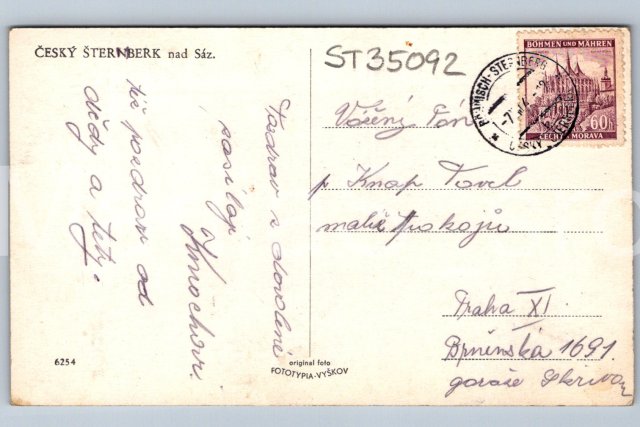 ČESKÝ ŠTERNBERK nad Sáz.
ST35092
BÖHMEN UND MÄHREN
60
ČECHY A MORAVA
BÖHMISCH-STERNBERG
ČESKÝ ŠTERNBERK
Pozdrav z dovolené
posílají
též pozdrav od
dědy a tety.
Vážený Pán
p Knap Pavel
malíř pokojů
Praha XI.
Brněnská 1691.
garáže
6254
original foto
FOTOTYPIA-VYŠKOV